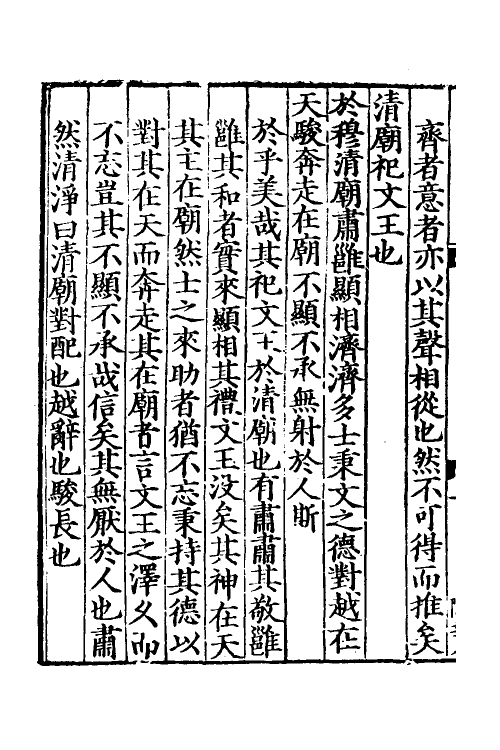 齊者意者亦以其聲相從也然不可得而推矣
清廟祀文王也
於穆清廟肅雝顯相濟濟多士秉文之德對越在
天駿奔走在廟不顯不承無射於人斯
於乎美哉其祀文王於清廟也有肅肅其敬雝
雝其和者實來顯相其禮文王没矣其神在天
其主在廟然士之來助者猶不忘秉持其德以
對其在天而奔走其在廟者言文王之澤久而
不忘豈其不顯不承哉信矣其無厭於人也肅
然清淨曰清廟對配也越辭也駿長也